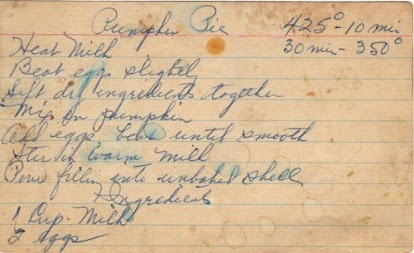 Pumpkin Pie
425° - 10 min
30 min - 350°
Heat Milk
Beat eggs slightly
Sift dry ingredients together
Mix in pumpkin
Add eggs until smooth
Stir in warm milk
Pour fillin into unbaked shell
Ingredients
1 Cup - Milk
2 eggs